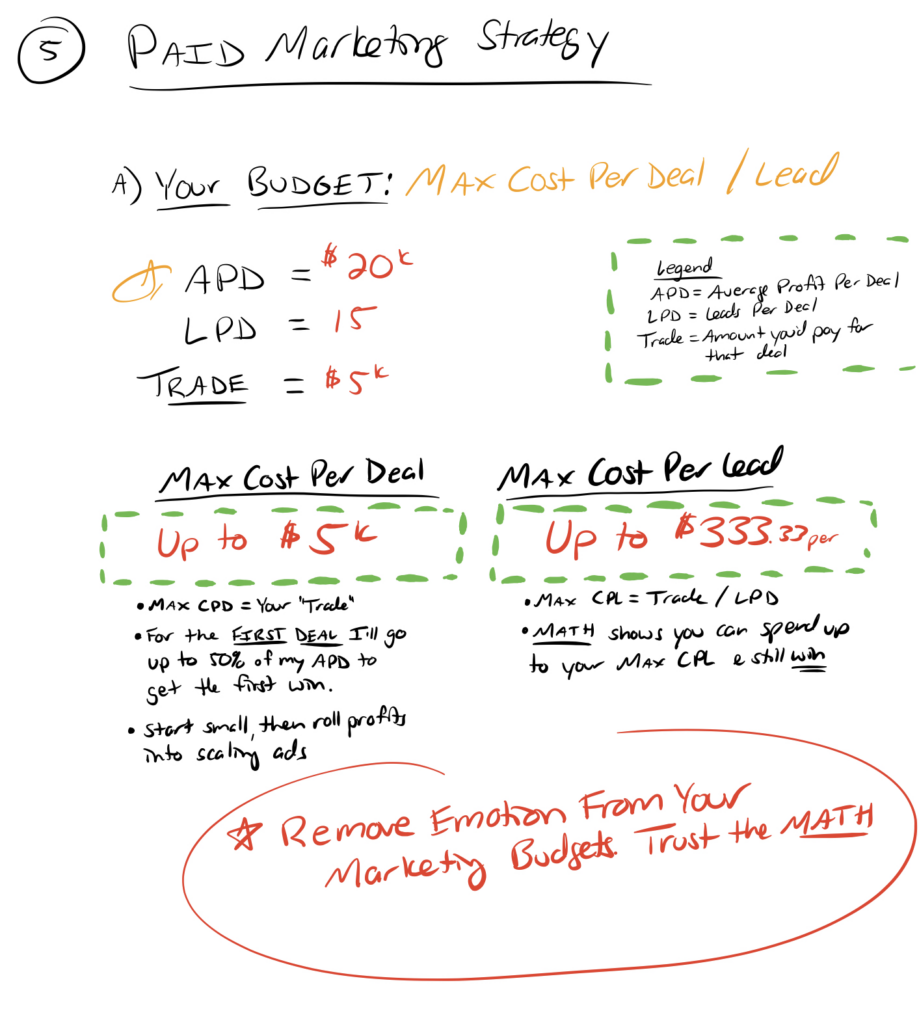 5 PAID Marketing Strategy
A) Your BUDGET: MAX Cost Per Deal / Lead
APD = $20k
LPD = 15
TRADE = $5k
Legend
APD = Average Profit Per Deal
LPD = Leads Per Deal
Trade = Amount you'd pay for
that deal
MAX Cost Per Deal
Up to $5k
• MAX CPD = Your "Trade"
• For the FIRST DEAL I'll go
up to 50% of my APD to
get the first win.
• Start small, then roll profits
into scaling ads
MAX Cost Per Lead
Up to $333.33 per
• MAX CPL = Trade / LPD
• MATH shows you can spend up
to your MAX CPL & still win
Remove Emotion From Your
Marketing Budgets. Trust the MATH